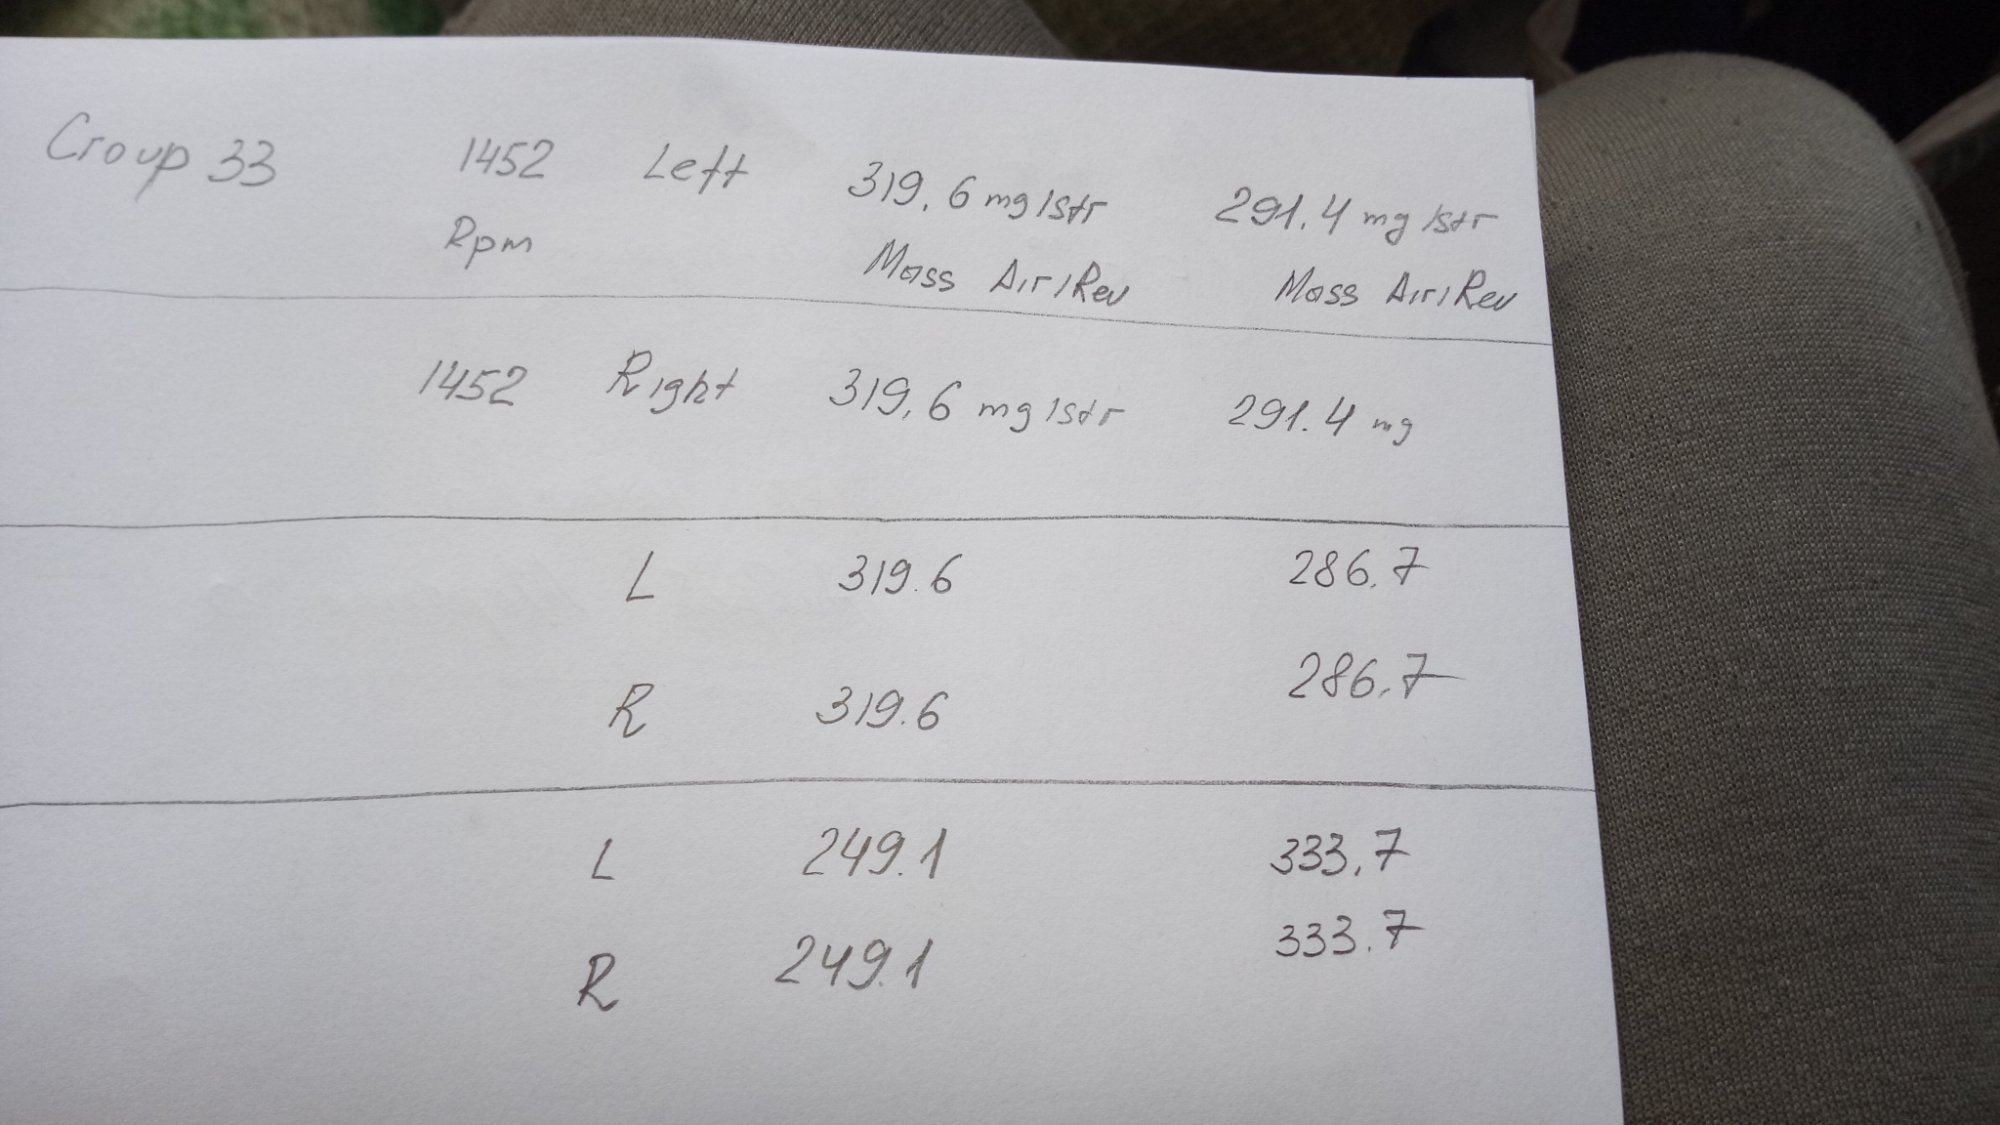 Group 33 1452 Left 319,6 mg/str 291.4 mg/str
Rpm Mass Air/Rev Mass Air/Rev
1452 Right 319,6 mg/str 291.4 mg
L 319.6 286.7
R 319.6 286.7
L 249.1 333.7
R 249.1 333.7